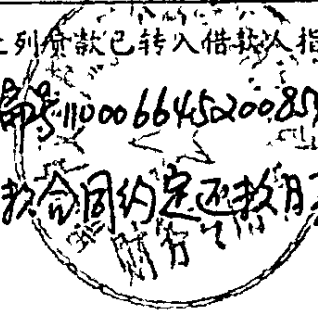 上列贷款已转入借款人指
编号11000664520085
款合同约定还款日
财务